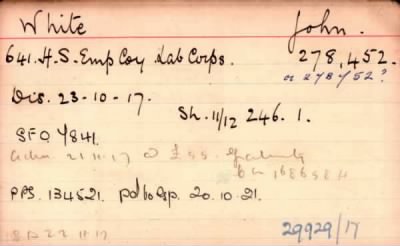 White John.
641. H. S. Emp Coy Lab Corps. 278,452.
or 278752?
Dis. 23-10-17.
Sh. 11/12 246. 1.
SFO 7/841.
21.11.17
PPS. 134521. 20.10.21.
22.11.17
29929/17